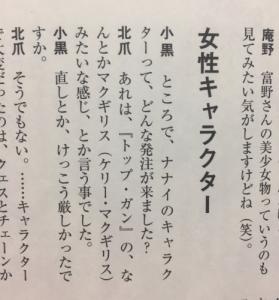 庵野　富野さんの美少女物っていうのも
見てみたい気がしますけどね（笑）。
女性キャラクター
小黒　ところで、ナナイのキャラク
ターって、どんな発注が来ました？
北爪　あれは、『トップ・ガン』の、な
んとかマクギリス（ケリー・マクギリス）
みたいな感じ、とか言う事でした。
小黒　直しとか、けっこう厳しかったで
すか。
北爪　そうでもない。……キャラクター
で大変だったのは、クェスとチェーンか